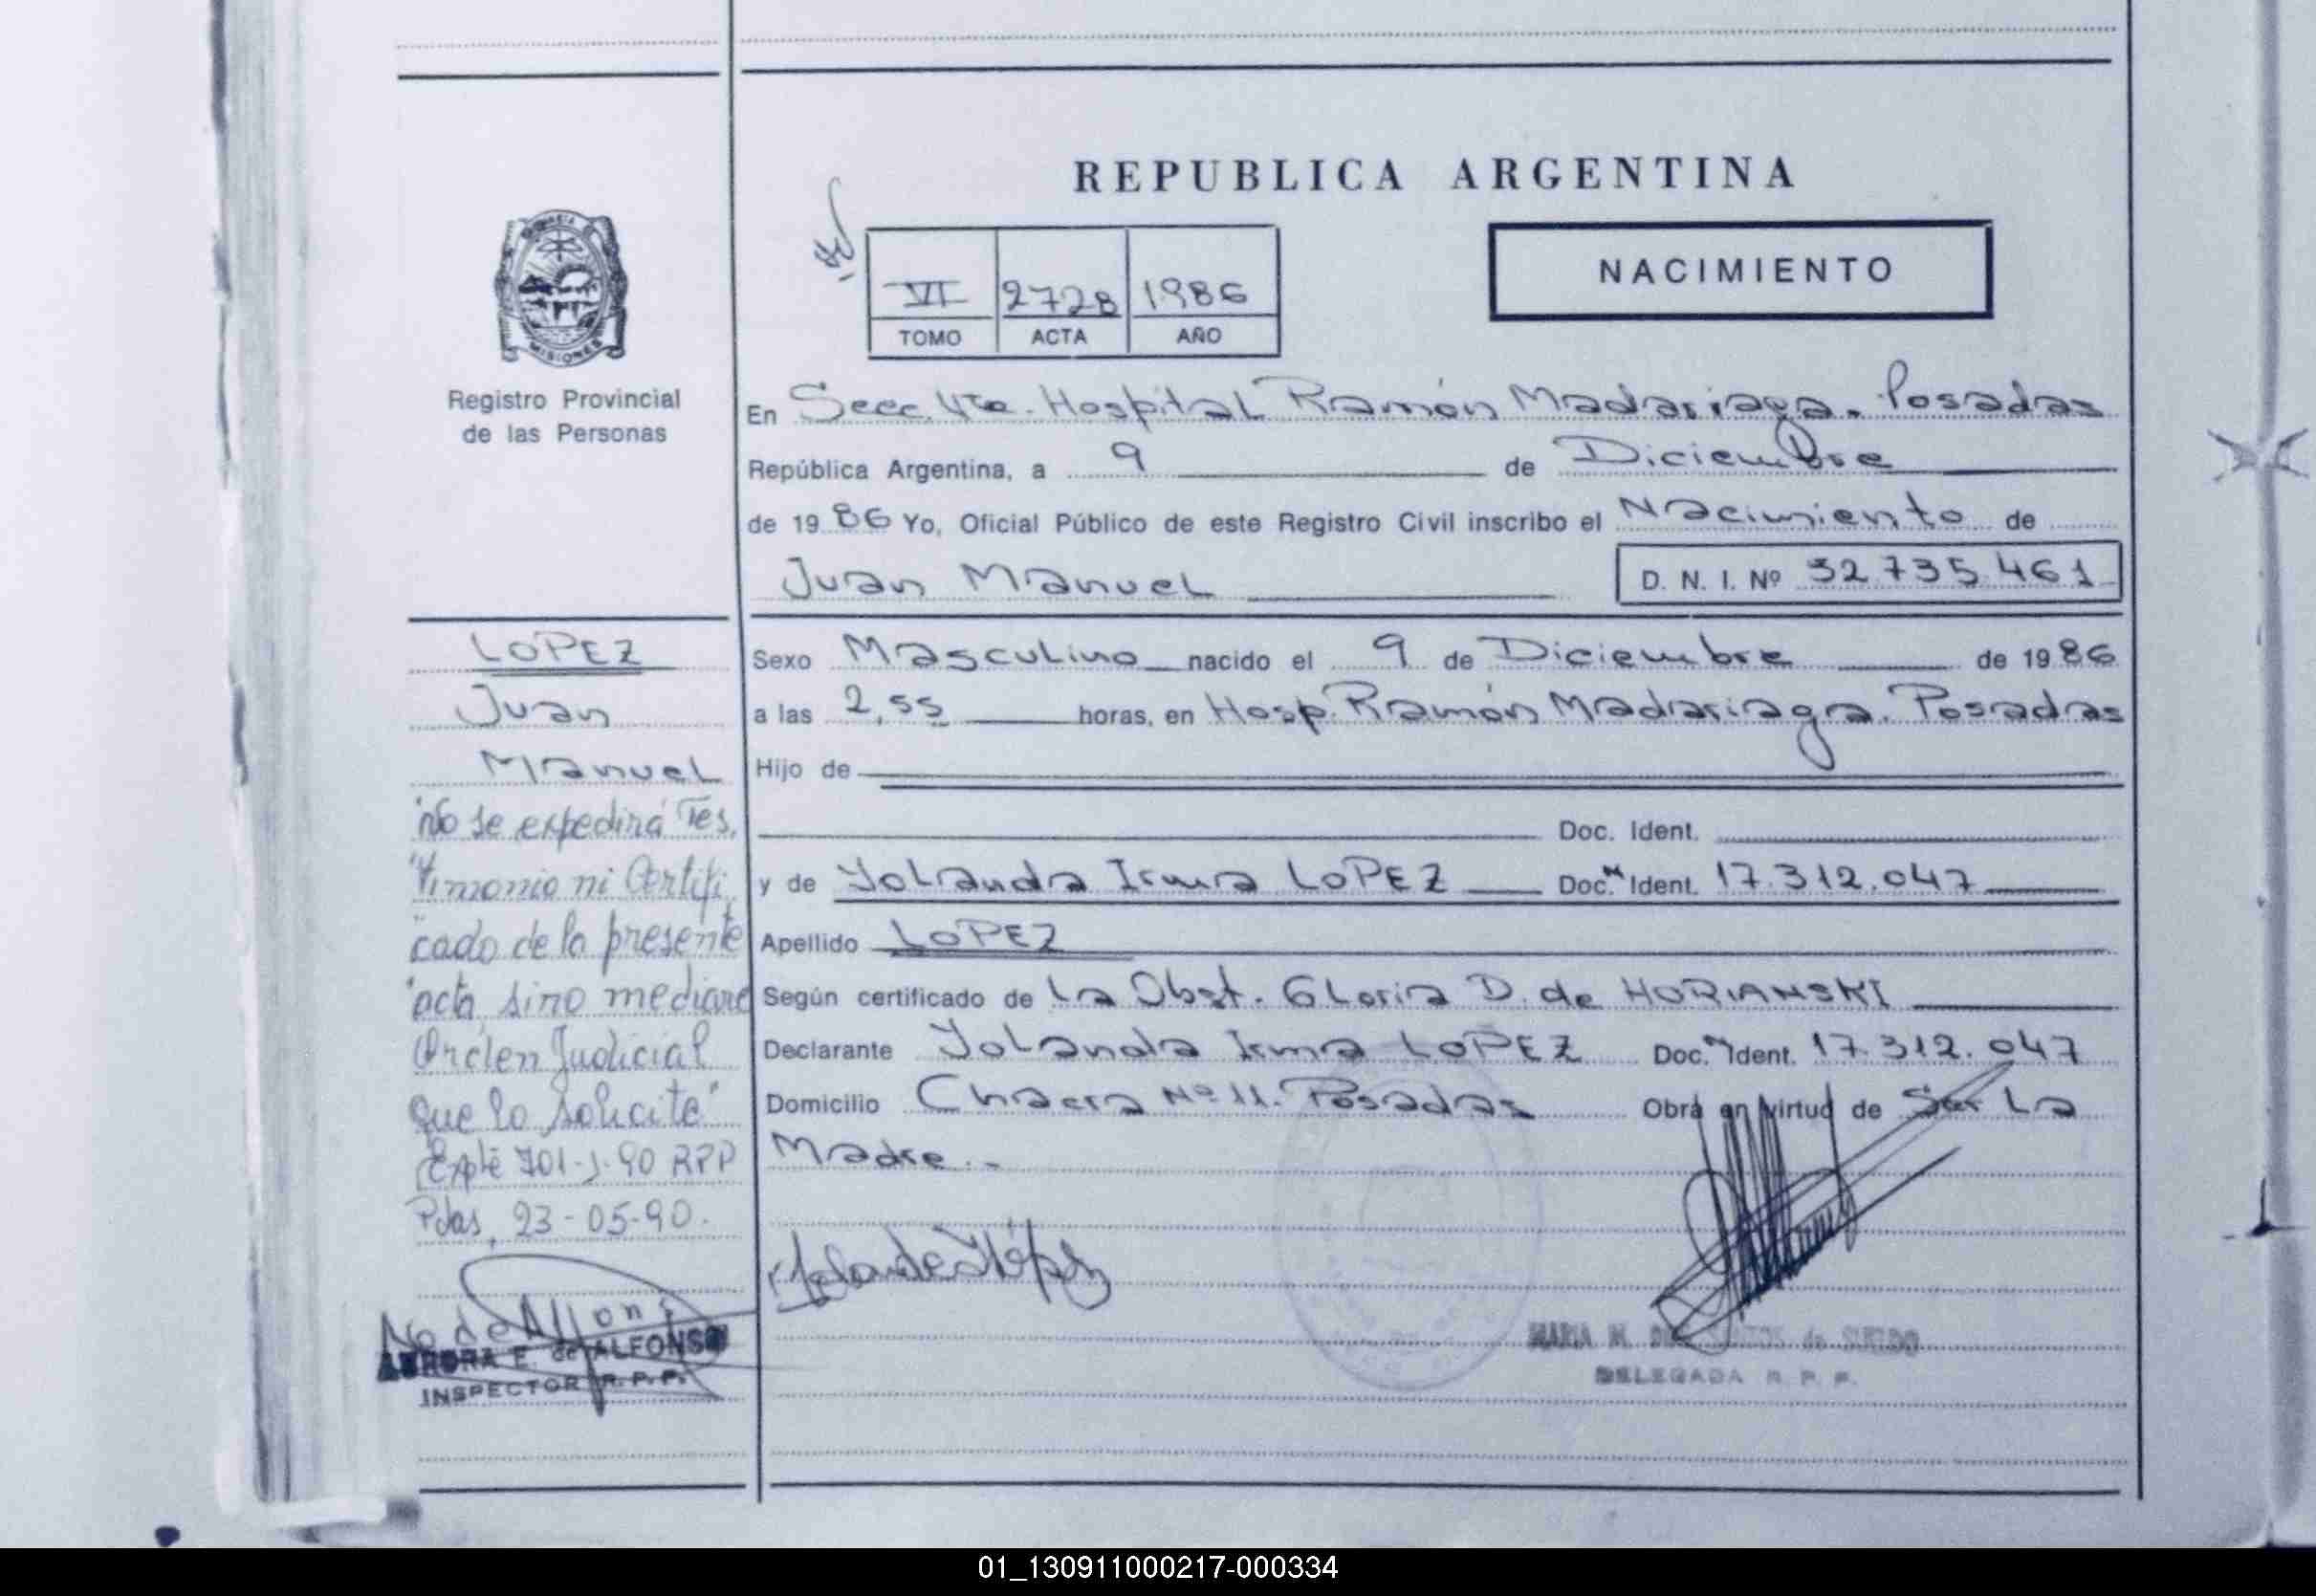 REPUBLICA ARGENTINA
NACIMIENTO
VI 2728 1986
TOMO ACTA AÑO
MISIONES
Registro Provincial
de las Personas
En Secc. 4ta. Hospital Ramón Madariaga. Posadas
República Argentina, a 9 de Diciembre
de 1986 Yo, Oficial Público de este Registro Civil inscribo el Nacimiento de
Juan Manuel D. N. I. Nº 32.735.461
LOPEZ
Juan
Manuel
"No se expedirá Tes,
"timonio ni Certifi,
"cado de la presente
"acta, sino mediare
Orden Judicial
que lo solicite"
Expte 701-J-90 RPP
Pdas, 23-05-90.
AURORA E. de ALFONSO
INSPECTOR R. P. P.
Sexo Masculino nacido el 9 de Diciembre de 1986
a las 2,55 horas, en Hosp. Ramón Madariaga. Posadas
Hijo de
Doc. Ident.
y de Yolanda Irma LOPEZ Doc. Ident. 17.312.047
Apellido LOPEZ
Según certificado de La Obst. Gloria D. de HORIANSKI
Declarante Yolanda Irma LOPEZ Doc. Ident. 17.312.047
Domicilio Chacra Nº 11. Posadas Obra en virtud de Ser La
Madre.-
Yolanda I López
MARIA M. de
DELEGADA R. P. P.
01_130911000217-000334